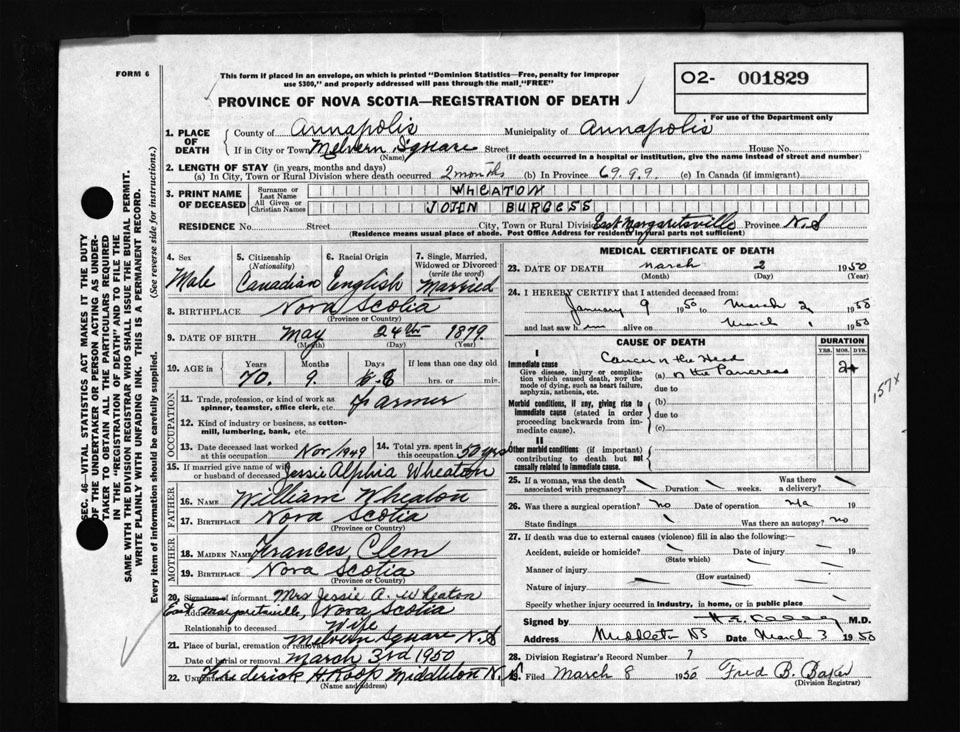 FORM 6
This form if placed in an envelope, on which is printed "Dominion Statistics—Free, penalty for improper
use $300," and properly addressed will pass through the mail "FREE"
PROVINCE OF NOVA SCOTIA—REGISTRATION OF DEATH
O2- 001829
For use of the Department only
1. PLACE OF DEATH { County of Annapolis Municipality of Annapolis
If in City or Town Melvern Square Street House No.
(Name) (If death occurred in a hospital or institution, give the name instead of street and number)
2. LENGTH OF STAY (in years, months and days)
(a) In City, Town or Rural Division where death occurred 2 months (b) In Province 69.9.9. (c) In Canada (if immigrant)
3. PRINT NAME OF DECEASED { Surname or Last Name WHEATON
All Given or Christian Names JOHN BURGESS
RESIDENCE No. Street City, Town or Rural Division East Margaretsville Province N.S
(Residence means usual place of abode. Post Office Address for residents in rural parts not sufficient)
4. Sex Male
5. Citizenship (Nationality) Canadian
6. Racial Origin English
7. Single, Married, Widowed or Divorced (write the word) Married
8. BIRTHPLACE Nova Scotia
(Province or Country)
9. DATE OF BIRTH May 24th 1879
(Month) (Day) (Year)
10. AGE Years 70. Months 9. Days 8 If less than one day old hrs. or min.
OCCUPATION
11. Trade, profession, or kind of work as spinner, teamster, office clerk, etc. Farmer
12. Kind of industry or business, as cotton-mill, lumbering, bank, etc.
13. Date deceased last worked at this occupation Nov/1949
14. Total yrs. spent in this occupation 50 yrs
15. If married give name of wife or husband of deceased Jessie Alphia Wheaton
FATHER
16. NAME William Wheaton
17. BIRTHPLACE Nova Scotia
(Province or Country)
MOTHER
18. MAIDEN NAME Frances Clem
19. BIRTHPLACE Nova Scotia
(Province or Country)
20. Signature of informant Mrs Jessie A. Wheaton
Address East Margaretsville, Nova Scotia
Relationship to deceased Wife
21. Place of burial, cremation or removal Melvern Square N.S
Date of burial or removal March 3rd 1950
22. Undertaker Frederick H. Roop Middleton N.S.
(Name and address)
MEDICAL CERTIFICATE OF DEATH
23. DATE OF DEATH March 2 1950
(Month) (Day) (Year)
24. I HEREBY CERTIFY that I attended deceased from:
January 9 1950 to March 2 1950
and last saw him alive on March 1 1950
CAUSE OF DEATH
DURATION
YRS. MOS. DYS.
I
Immediate cause
Give disease, injury or complication which caused death, not the mode of dying, such as heart failure, asphyxia, asthenia, etc.
(a) Cancer in the Head of the Pancreas
2+
157x
due to
Morbid conditions, if any, giving rise to immediate cause (stated in order proceeding backwards from immediate cause).
(b)
due to
(c)
II
Other morbid conditions (if important) contributing to death but not causally related to immediate cause.
25. If a woman, was the death associated with pregnancy? Duration weeks. Was there a delivery?
26. Was there a surgical operation? no Date of operation n/a 19
State findings Was there an autopsy? no
27. If death was due to external causes (violence) fill in also the following:—
Accident, suicide or homicide? Date of injury 19
(State which)
Manner of injury
(How sustained)
Nature of injury
Specify whether injury occurred in industry, in home, or in public place
Signed by M.D.
Address Middleton NS Date March 3 1950
28. Division Registrar's Record Number 7
Filed March 8 1950 Fred B. Baker
(Division Registrar)
SEC. 46—VITAL STATISTICS ACT MAKES IT THE DUTY
OF THE UNDERTAKER OR PERSON ACTING AS UNDER-
TAKER TO OBTAIN ALL THE PARTICULARS REQUIRED
IN THE "REGISTRATION OF DEATH" AND TO FILE THE
SAME WITH THE DIVISION REGISTRAR WHO SHALL ISSUE THE BURIAL PERMIT.
WRITE PLAINLY WITH UNFADING INK. THIS IS A PERMANENT RECORD.
Every item of information should be carefully supplied. (See reverse side for instructions.)